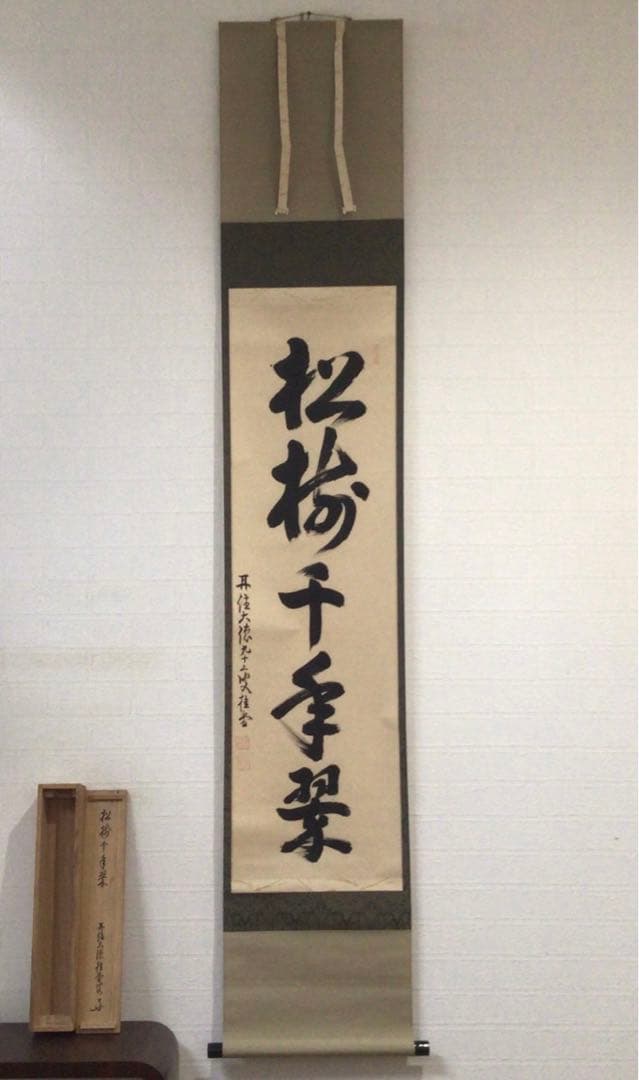 松樹千年翠
再住大徳九十二叟桂堂
松樹千年翠
再住大徳桂堂